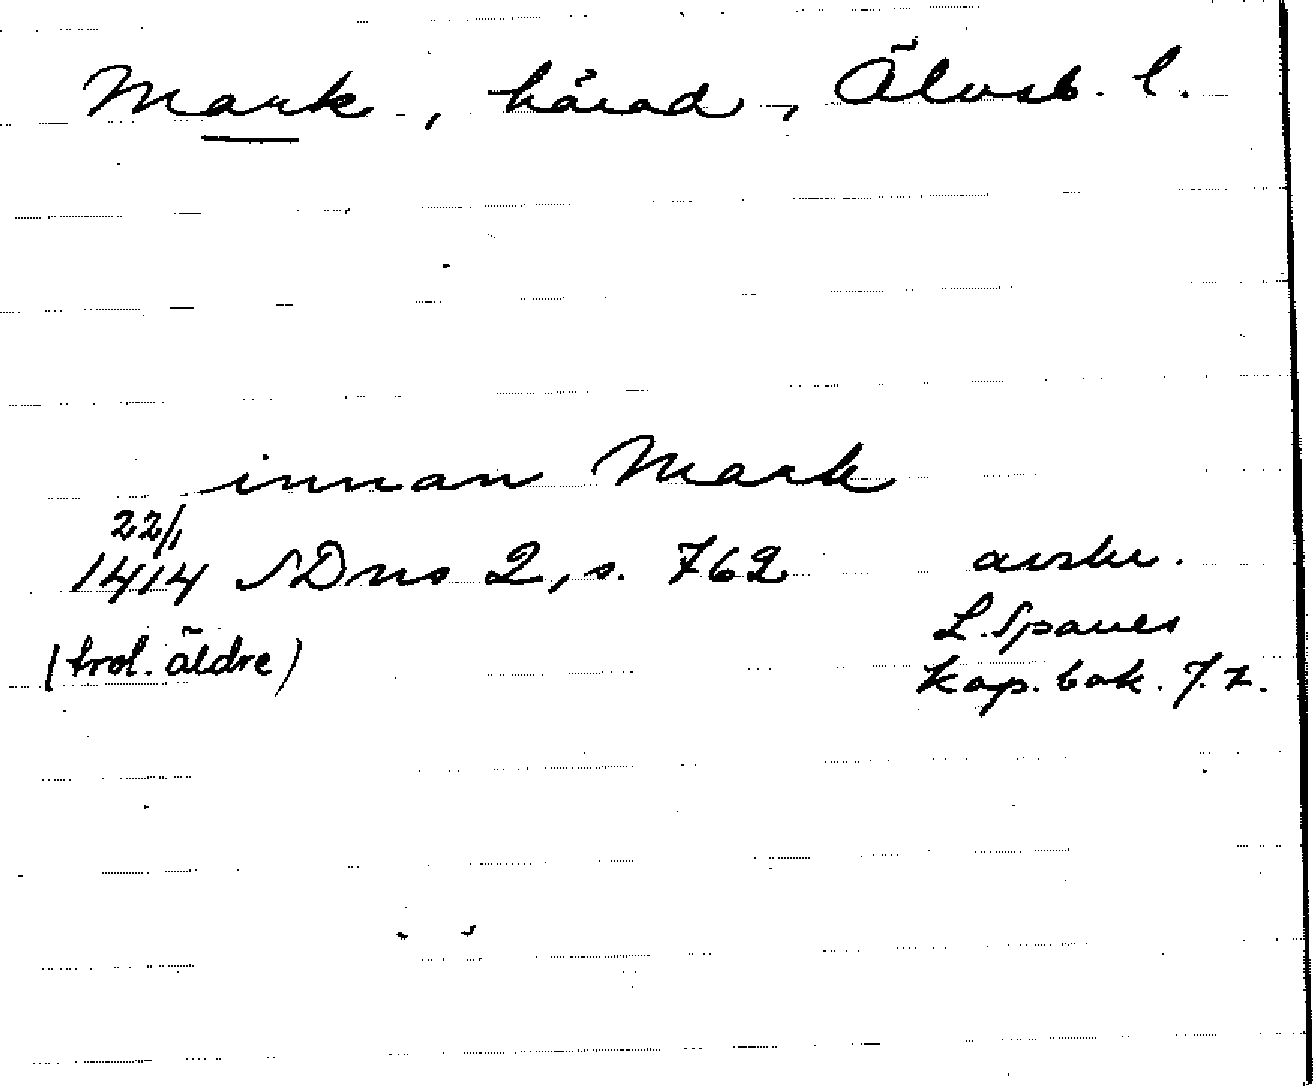 Mark, härad, Älvsb. l.
innan Mark
22/1
1414 SDns 2, s. 762 avskr.
(trol. äldre) L. Spares
kop. bok. f. 7.